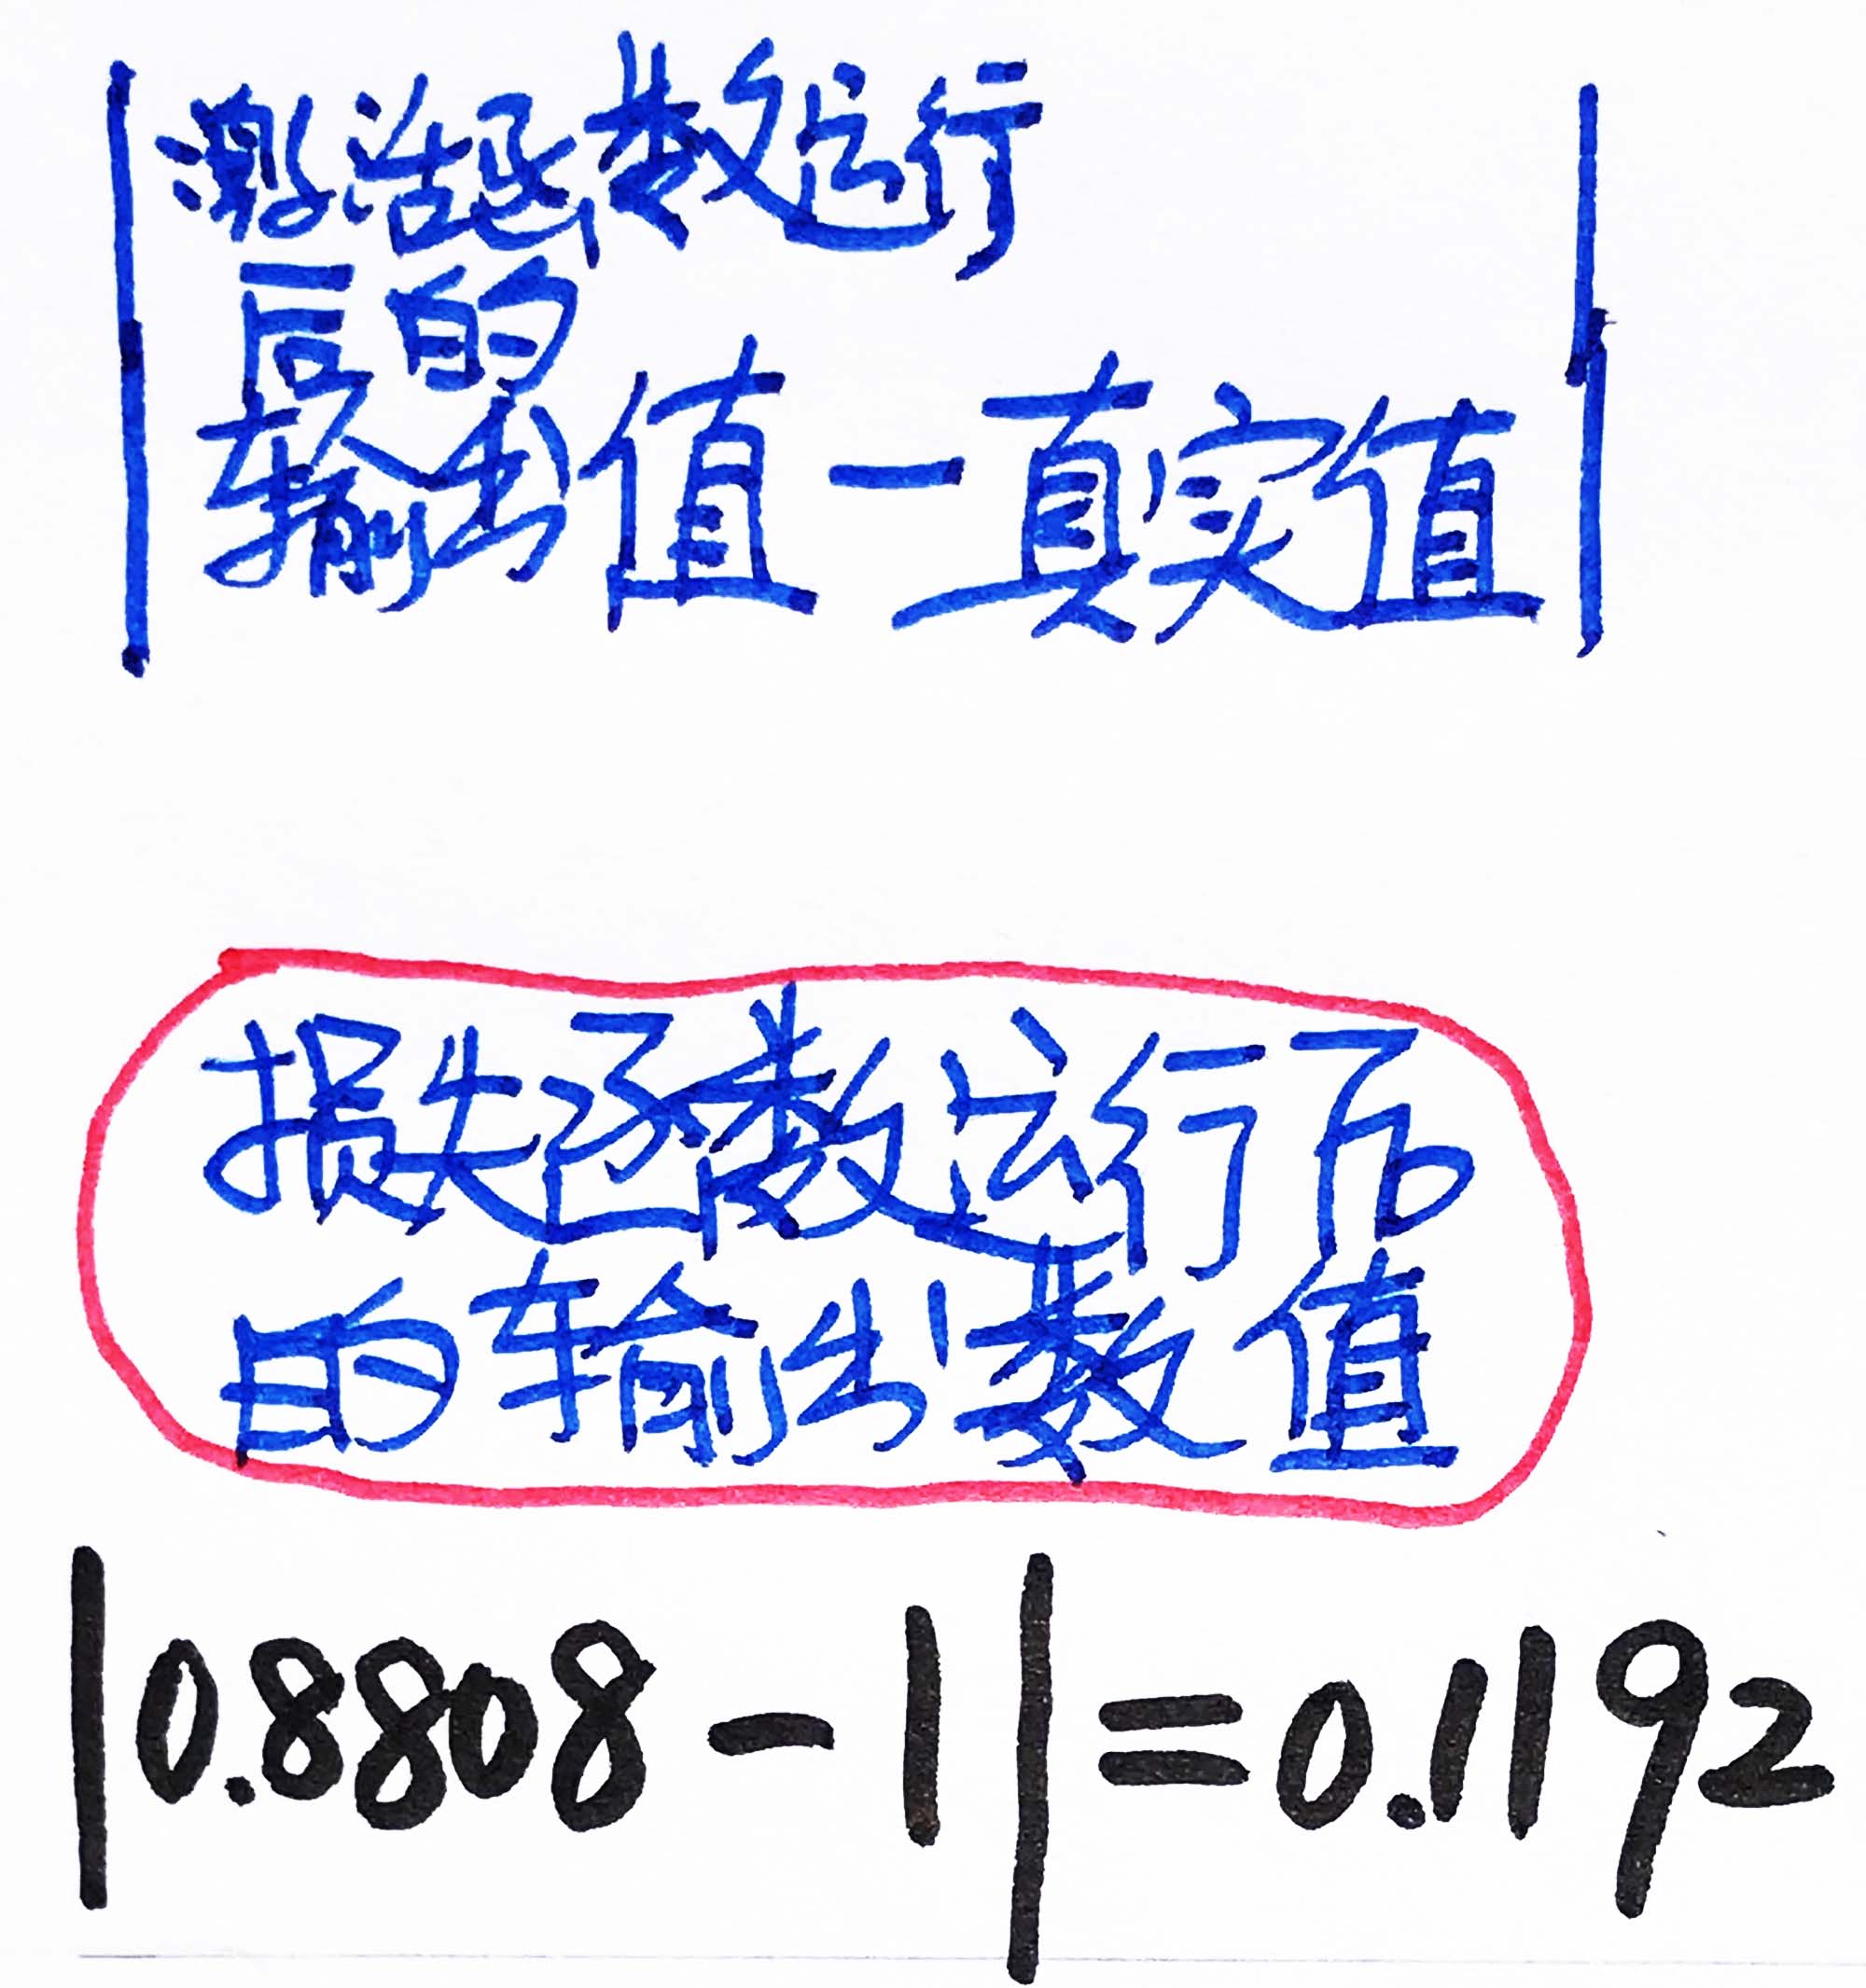 |激活函数运行
后的
输出值-真实值|
损失函数运行后
的输出数值
|0.8808-1|=0.1192